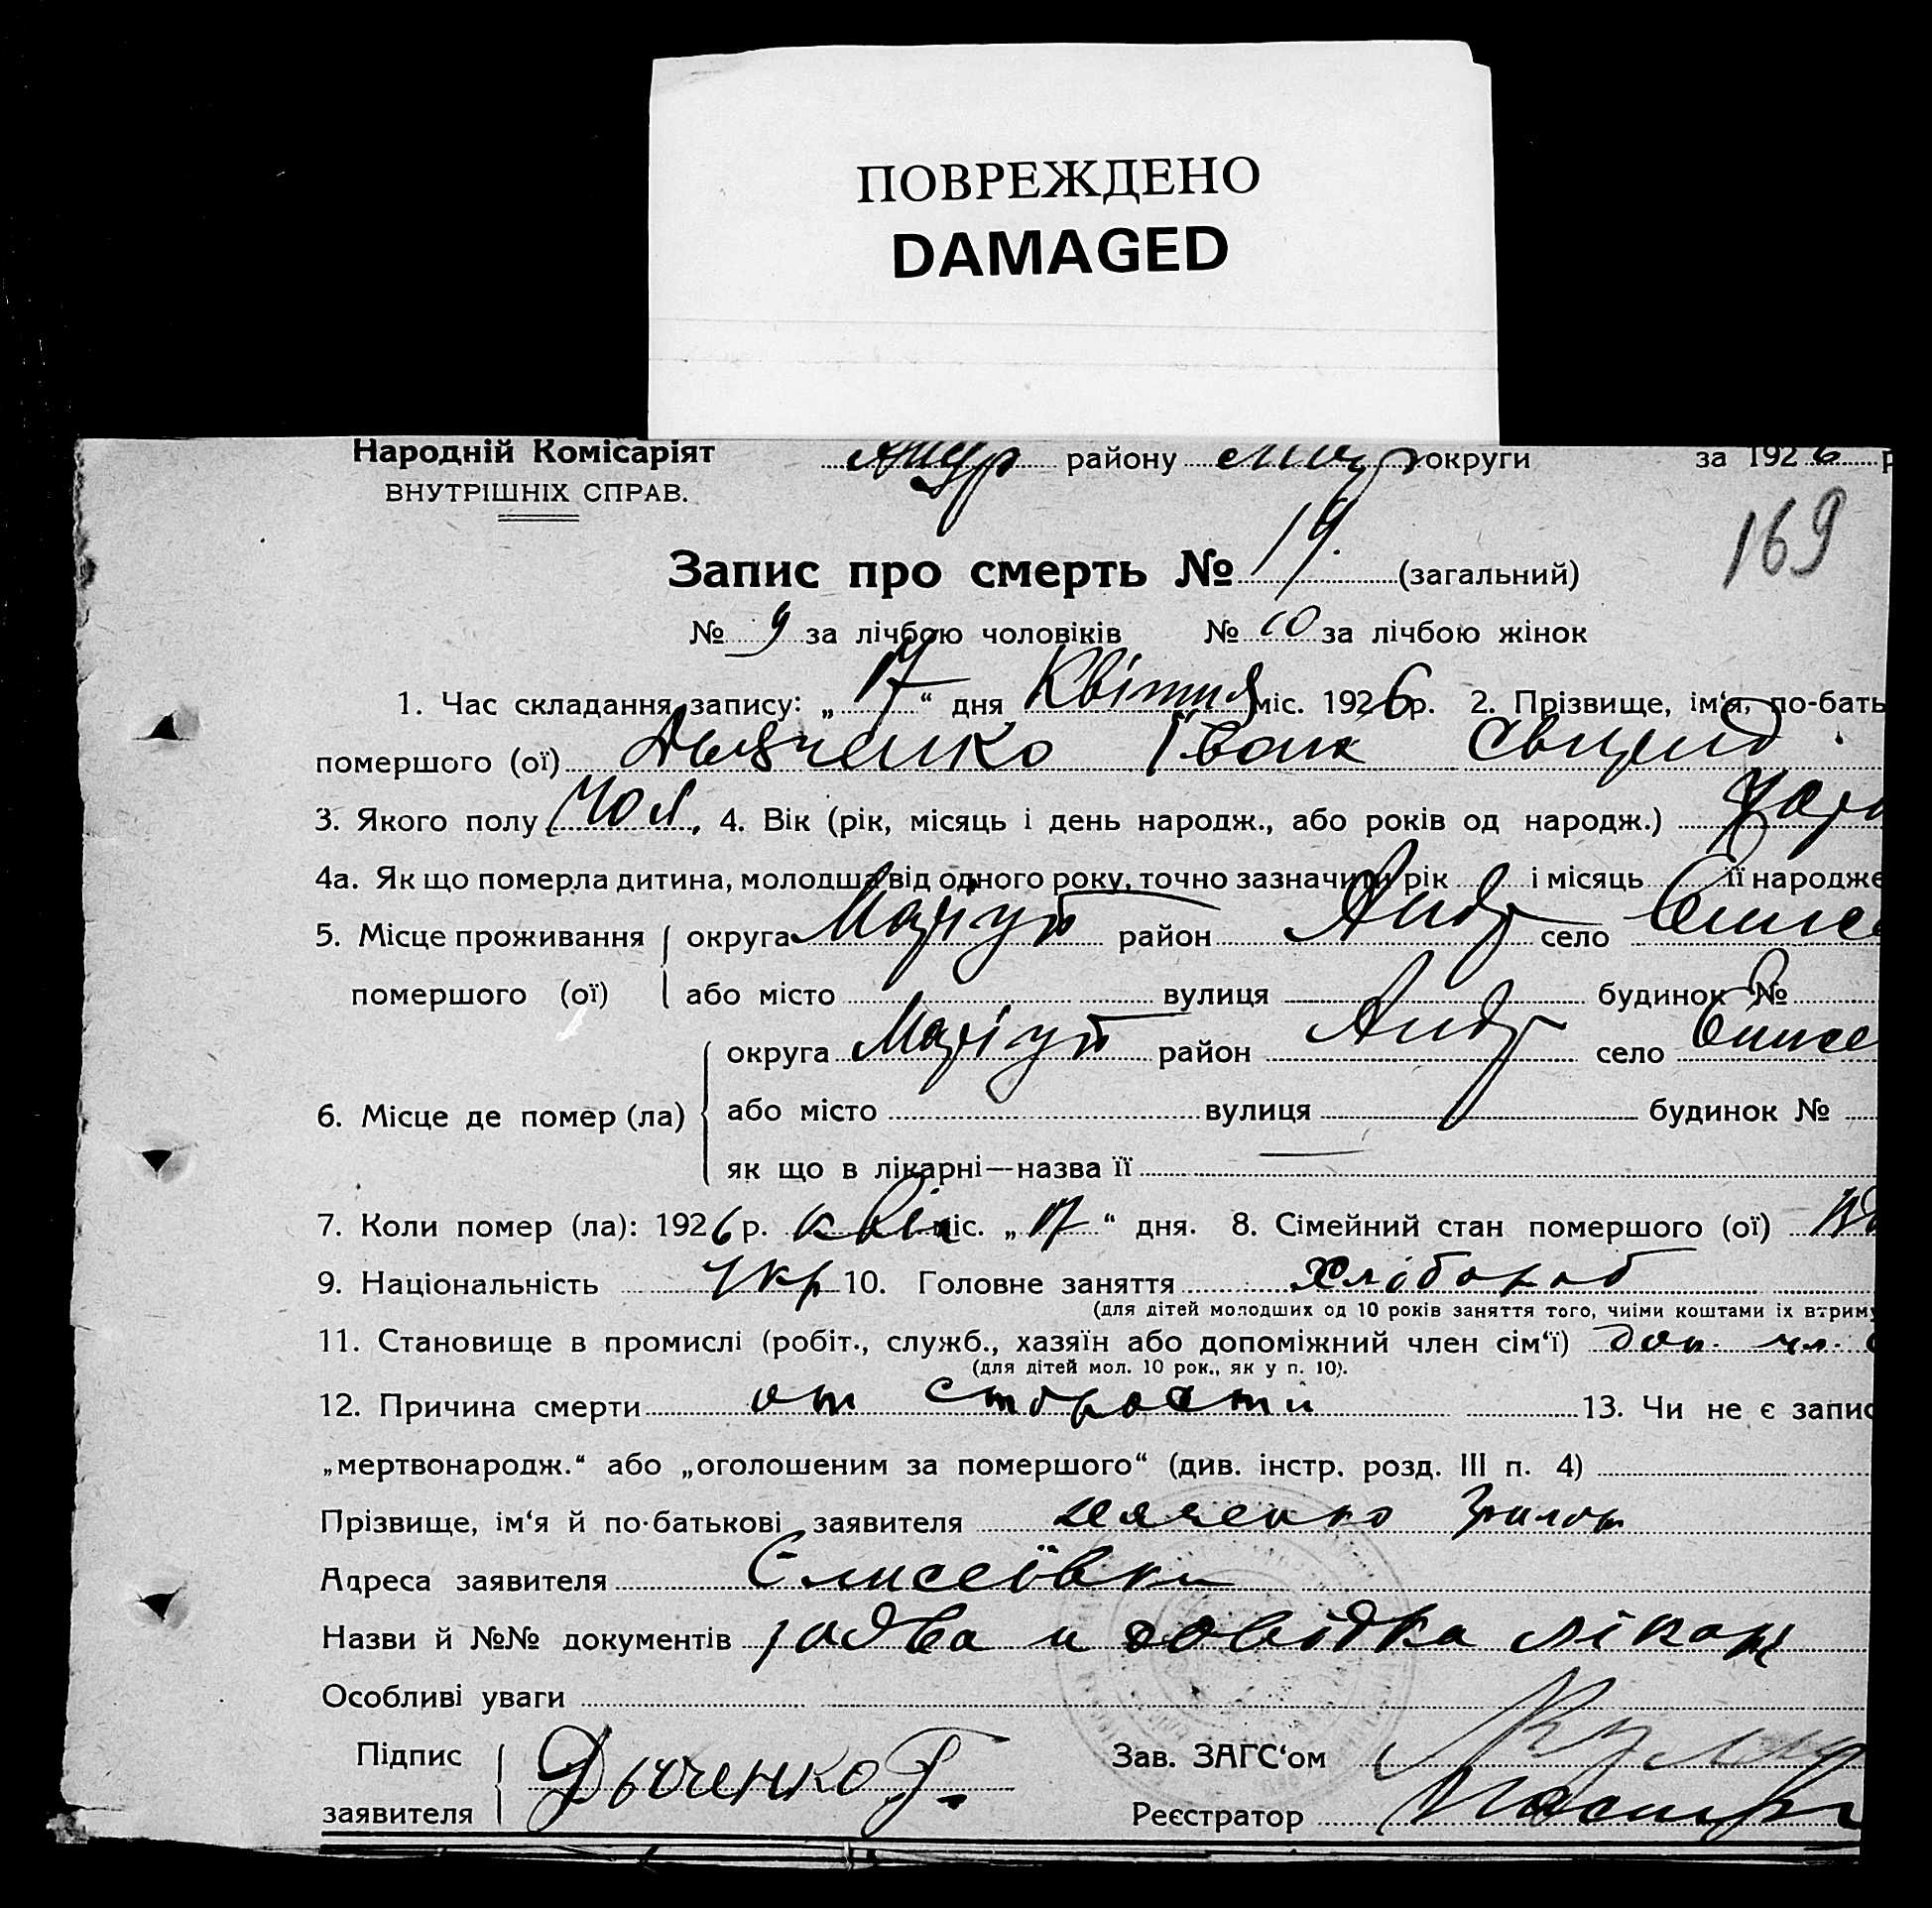 ПОВРЕЖДЕНО
DAMAGED
Народній Комісаріят району округи за 1926 р
ВНУТРІШНІХ СПРАВ.
169
Запис про смерть № 19. (загальний)
№ 9 за лічбою чоловіків № 10 за лічбою жінок
1. Час складання запису: „17“ дня Квітня міс. 1926р. 2. Прізвище, ім‘я, по-бать
помершого (ої) Дьяченко Іван Свирид
3. Якого полу Чол. 4. Вік (рік, місяць і день народж., або років од народж.)
4а. Як що померла дитина, молодша від одного року, точно зазначити рік і місяць її народже
5. Місце проживання округа Маріуп район Андр село Елисе
помершого (ої) або місто вулиця будинок №
округа Маріуп район Андр село Елисе
6. Місце де помер (ла) або місто вулиця будинок №
як що в лікарні—назва її
7. Коли помер (ла): 1926р. Квіт міс. „17“ дня. 8. Сімейний стан помершого (ої)
9. Національність Укр 10. Головне заняття Хлібороб
(для дітей молодших од 10 років заняття того, чиїми коштами їх втриму
11. Становище в промислі (робіт., служб., хазяїн або допоміжний член сім‘ї) доп. чл. с
(для дітей мол. 10 рок., як у п. 10).
12. Причина смерти от старости 13. Чи не є запис
„мертвонародж.“ або „оголошеним за помершого“ (див. інстр. розд. III п. 4)
Прізвище, ім‘я й по-батькові заявителя Дяченко
Адреса заявителя Єлисеївка
Назви й №№ документів заява и довідка лікаря
Особливі уваги
Підпис Зав. ЗАГС‘ом
заявителя Дьяченко Г. Реєстратор